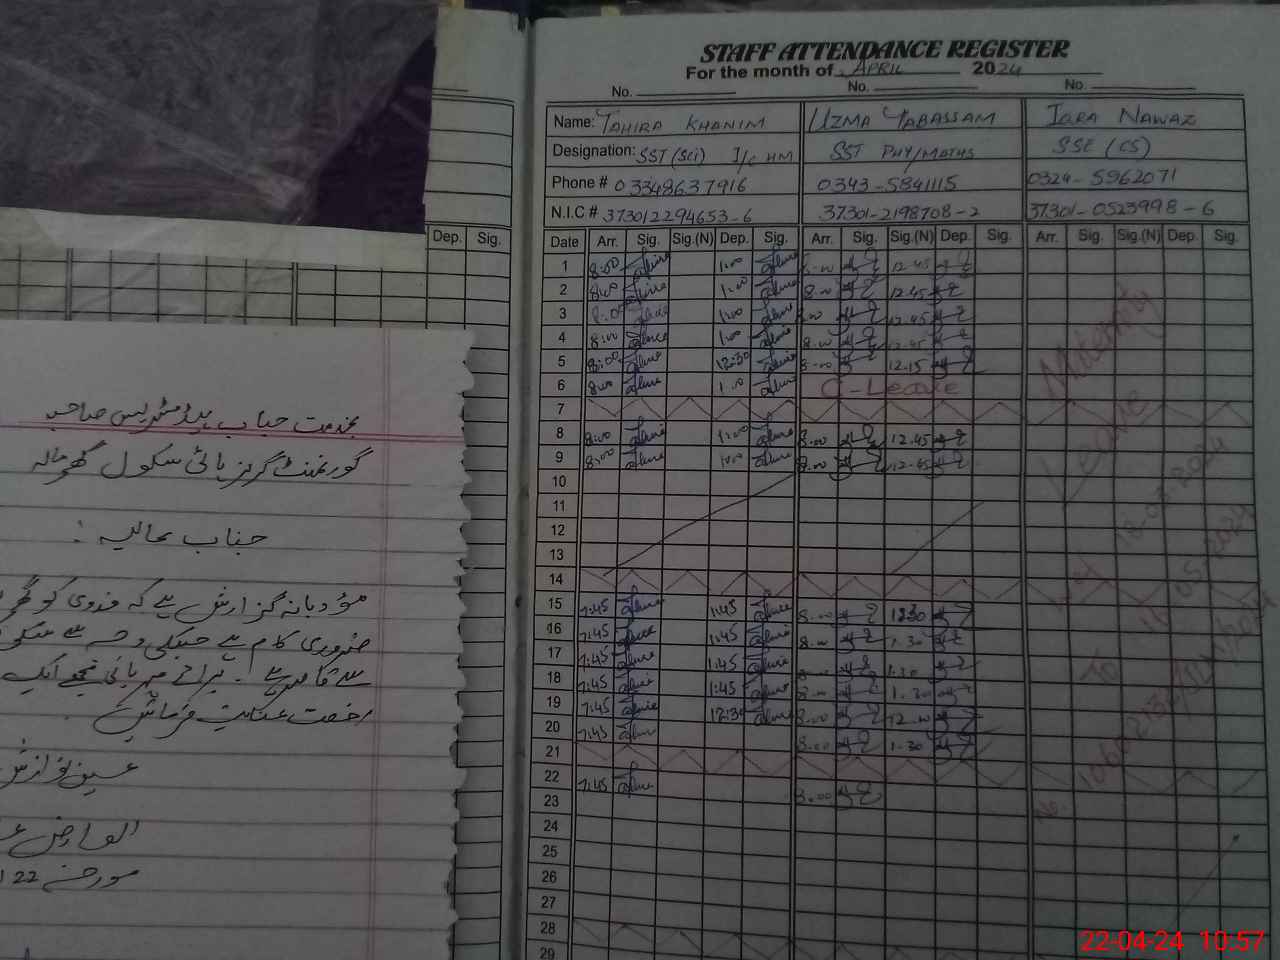 بخدمت جناب ہیڈ مسٹریس صاحبہ
گورنمنٹ گرلز ہائی سکول
جناب عالیہ :
مؤدبانہ گزارش ہے کہ فدوی کو گھر
ضروری کام ہے جسکی وجہ سے سکو
سے قاصر ہے ۔ برائے مہربانی مجھے ایک
رخصت عنایت فرمائیں
عین نوازش
العارض
مورخہ 22
Dep. Sig.
STAFF ATTENDANCE REGISTER
For the month of APRIL 2024
No. No. No.
Name: TAHIRA KHANIM UZMA TABASSAM IQRA NAWAZ
Designation: SST (Sci) I/C HM SST PHY/MATHS SSE (CS)
Phone # 03348637916 0343-5841115 0324-5962071
N.I.C # 373012294653-6 37301-2198708-2 37301-0523998-6
Date Arr. Sig. Sig.(N) Dep. Sig. Arr. Sig. Sig.(N) Dep. Sig. Arr. Sig. Sig.(N) Dep. Sig.
1 8:00 1:00 8:00 12.45
2 8:00 1:00 8:00 12.45
3 8:00 1:00 8:00 12.45
4 8:00 1:00 8:00 12.45
5 8:00 12:30 8:00 12.15
6 8:00 1:00 C-Leave
7
8 8:00 1:00 8:00 12.45
9 8:00 1:00 8:00 12.45
10
11
12
13
14
15 7:45 1:45 8.00 1.30
16 7:45 1:45 8.00 1.30
17 7:45 1:45 8.00 1.30
18 7:45 1:45 8.00 1.30
19 7:45 12:30 8.00
20 7:45 8.00 1.30
21
22 7:45 8.00
23
24
25
26
27
28
29
Maternity
Leave
18-03-2024
To
22-04-24 10:57